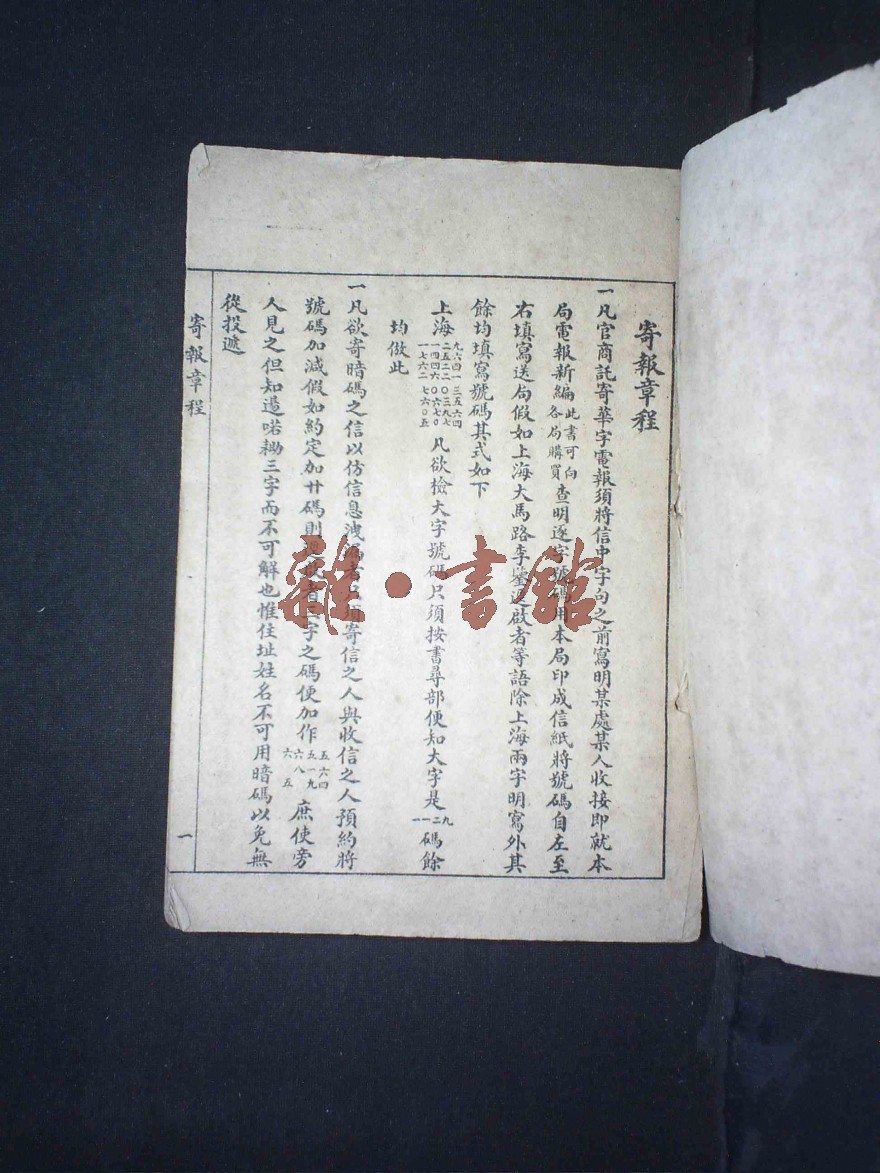 寄報章程
一凡官商託寄華字電報須將信中字句之前寫明某處某人收接即就本
局電報新編此書可向各局購買查明逐字號碼用本局印成信紙將號碼自左至
右填寫送局假如上海大馬路李逕啟者等語除上海兩字明寫外其
餘均填寫號碼其式如下
上海九六四一三五六四二五二二〇三九七一四四六〇六七〇一七六二七六〇五凡欲檢大字號碼只須按書尋部便知大字是一一二九碼餘
均倣此
一凡欲寄暗碼之信以仿信息洩漏者只須寄信之人與收信之人預約將
號碼加減假如約定加廿碼則逕啟者三字之碼便加作庶使旁
人見之但知過喏耡三字而不可解也惟住址姓名不可用暗碼以免無
從投遞
寄報章程
一
雜·書館